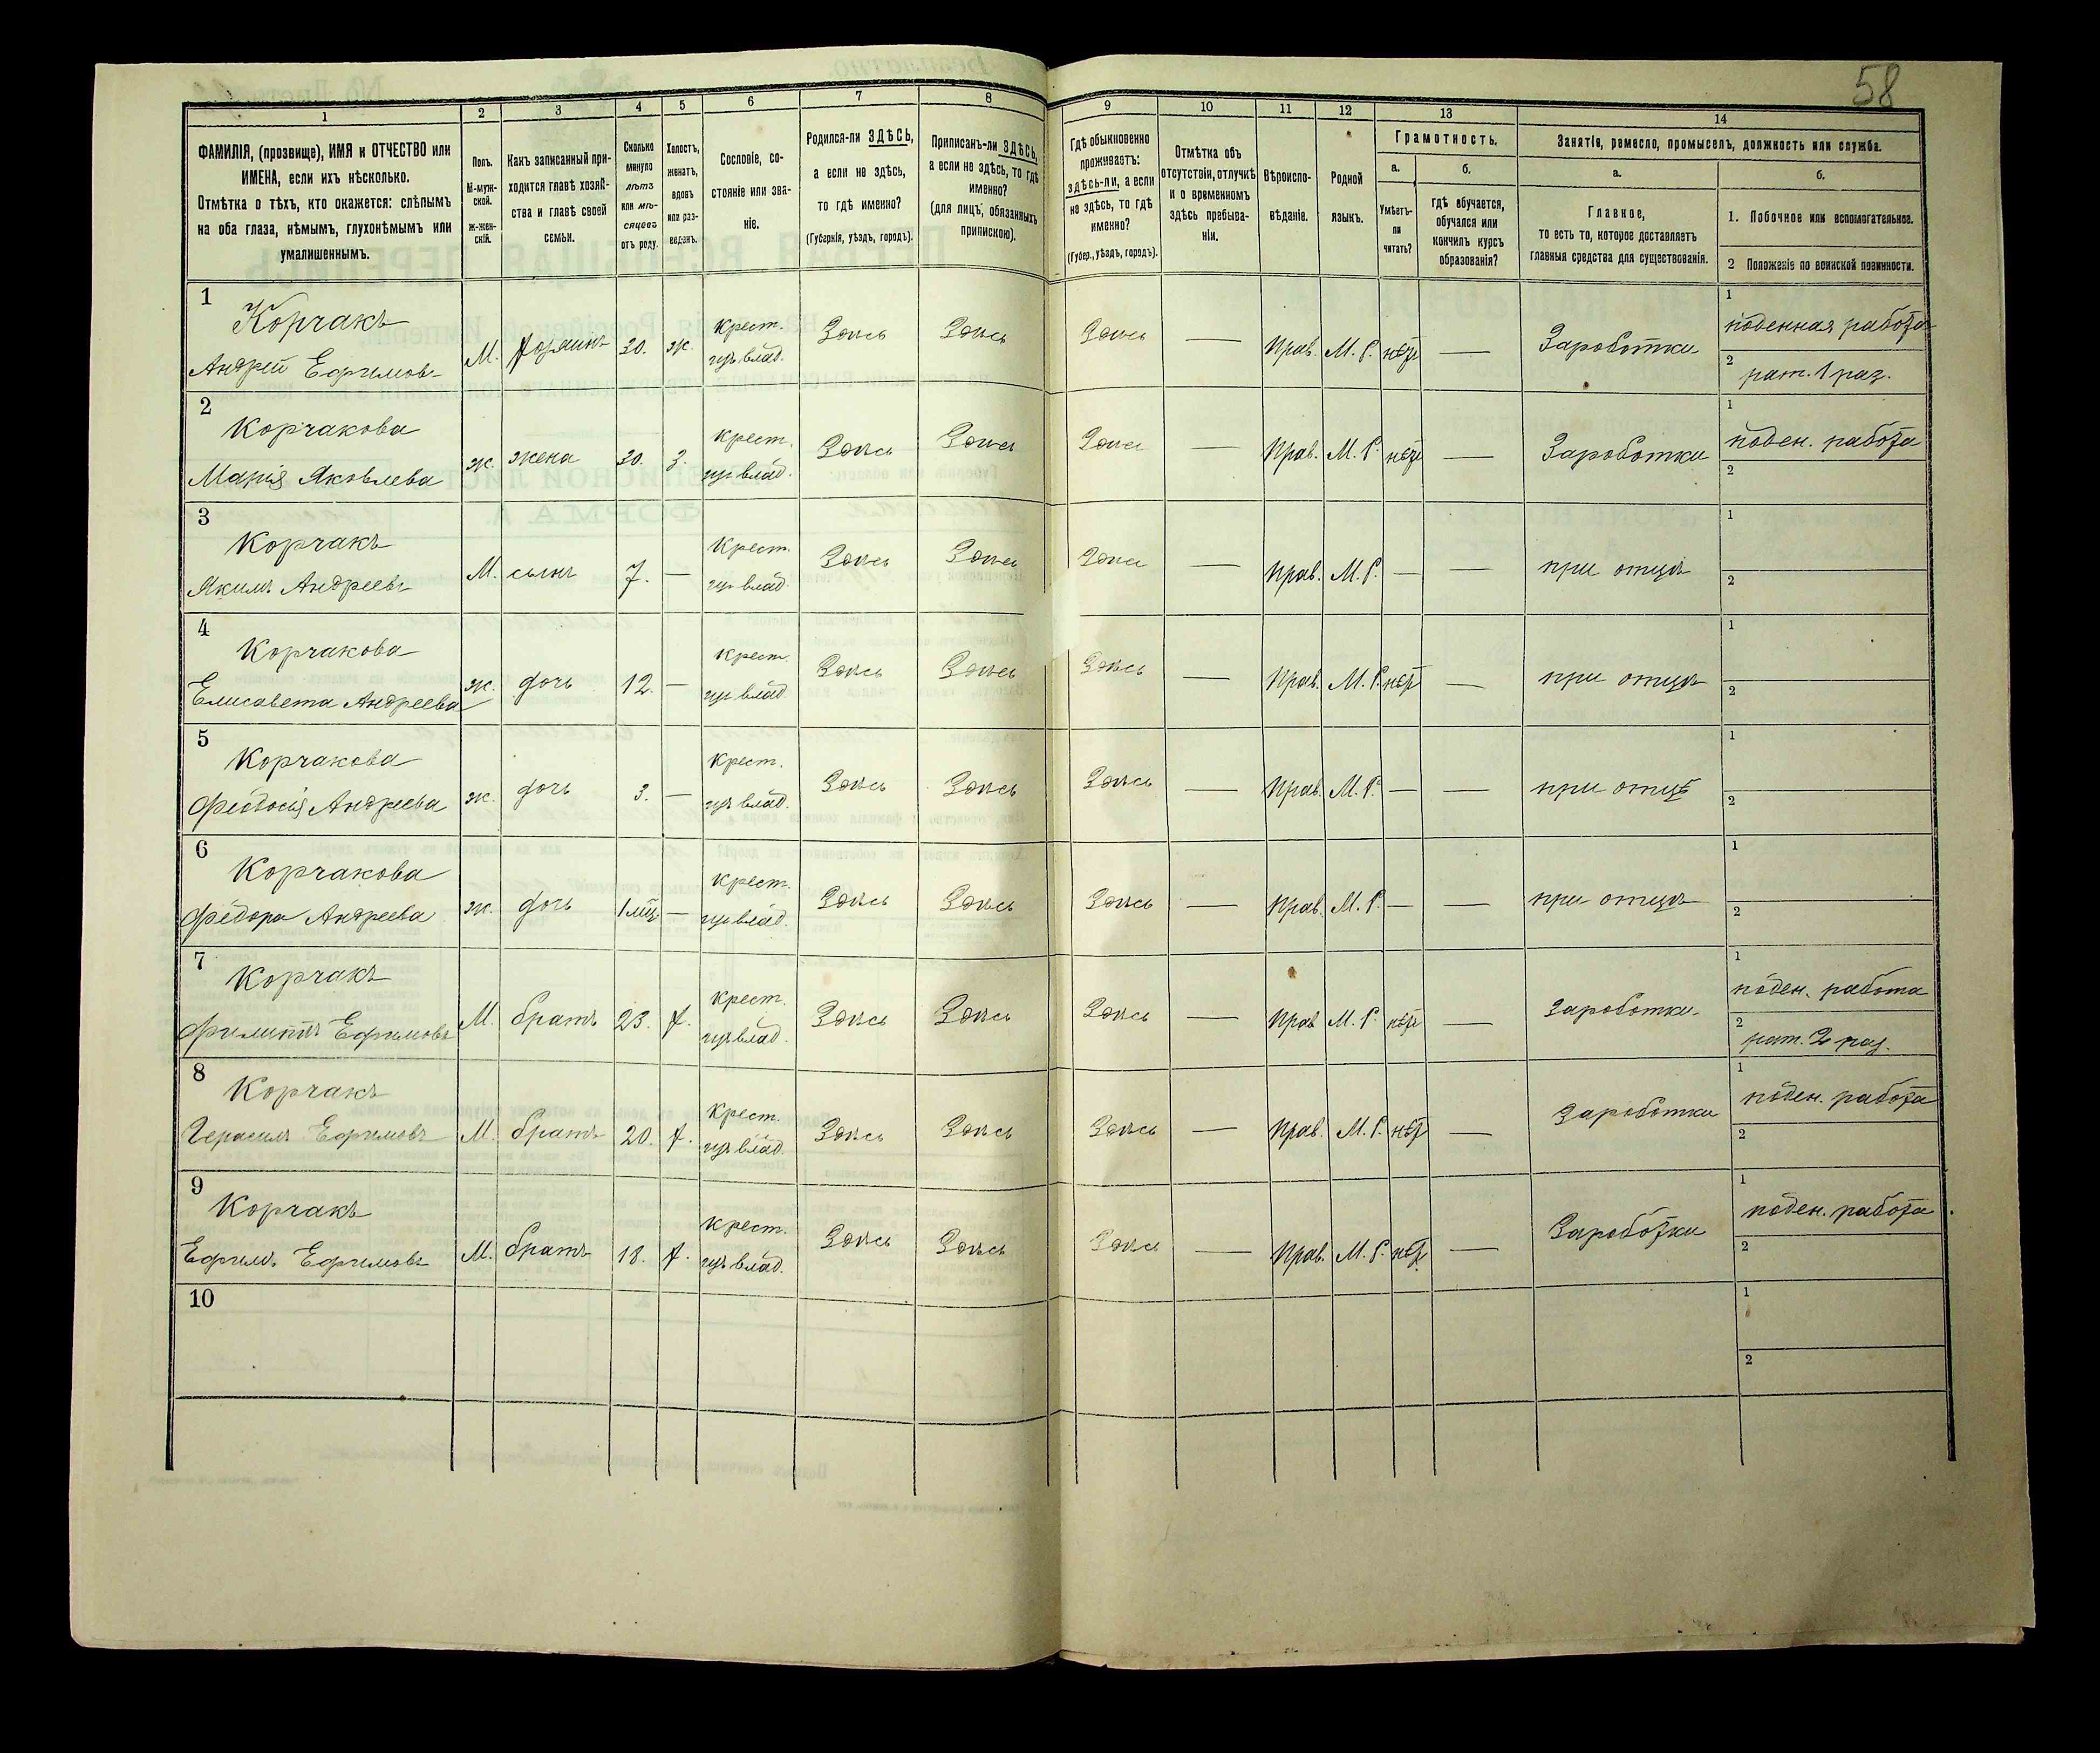 58
1 2 3 4 5 6 7 8 9 10 11 12 13 14
ФАМИЛІЯ, (прозвище), ИМЯ и ОТЧЕСТВО или
ИМЕНА, если ихъ нѣсколько.
Отмѣтка о тѣхъ, кто окажется: слѣпымъ
на оба глаза, нѣмымъ, глухонѣмымъ или
умалишеннымъ.
Полъ.
М-муж-
ской.
ж-жен-
скій.
Какъ записанный при-
ходится главѣ хозяй-
ства и главѣ своей
семьи.
Сколько
минуло
лѣтъ
или мѣ-
сяцевъ
отъ роду.
Холостъ,
женатъ,
вдовъ
или раз-
веденъ.
Сословіе, со-
стояніе или зва-
ніе.
Родился-ли ЗДѢСЬ,
а если не здѣсь,
то гдѣ именно?
(Губернія, уѣздъ, городъ).
Приписанъ-ли ЗДѢСЬ,
а если не здѣсь, то гдѣ
именно?
(для лицъ, обязанныхъ
припискою).
Гдѣ обыкновенно
проживаетъ:
здѣсь-ли, а если
не здѣсь, то гдѣ
именно?
(Губер., уѣздъ, городъ).
Отмѣтка объ
отсутствіи, отлучкѣ
и о временномъ
здѣсь пребыва-
ніи.
Вѣроиспо-
вѣданіе.
Родной
языкъ.
Грамотность.
а.
Умѣетъ-
ли
читать?
б.
гдѣ обучается,
обучался или
кончилъ курсъ
образованія?
Занятіе, ремесло, промыселъ, должность или служба.
а.
Главное,
то есть то, которое доставляетъ
главныя средства для существованія.
б.
1. Побочное или вспомогательное.
2 Положеніе по воинской повинности.
1
Корчакъ
Андрей Ефимовъ
М. 30. ж. крест. изъ влад. Здѣсь Здѣсь Здѣсь — Прав. М. Р. нѣтъ — Зароботки
1 поденная работа
2 рат. 1 раз.
2
Корчакова
Марія Яковлева
ж. жена 30. З. крест. изъ влад. Здѣсь Здѣсь Здѣсь — Прав. М. Р. нѣтъ — Зароботки
1 поден. работа
2
3
Корчакъ
Якимъ Андреевъ
М. сынъ 7. — крест. изъ влад. Здѣсь Здѣсь Здѣсь — Прав. М. Р. — — при отцѣ
1
2
4
Корчакова
Елисавета Андреева
ж. дочь 12. — крест. изъ влад. Здѣсь Здѣсь Здѣсь — Прав. М. Р. нѣтъ — при отцѣ
1
2
5
Корчакова
Феодосія Андреева
ж. дочь 3. — крест. изъ влад. Здѣсь Здѣсь Здѣсь — Прав. М. Р. — — при отцѣ
1
2
6
Корчакова
Федора Андреева
ж. дочь 1 мц. — крест. изъ влад. Здѣсь Здѣсь Здѣсь — Прав. М. Р. — — при отцѣ
1
2
7
Корчакъ
Филиппъ Ефимовъ
М. братъ 23. х. крест. изъ влад. Здѣсь Здѣсь Здѣсь — Прав М. Р. нѣтъ — Зароботки
1 поден. работа
2 рат. 2 раз.
8
Корчакъ
Герасимъ Ефимовъ
М. братъ 20. х. крест. изъ влад. Здѣсь Здѣсь Здѣсь — Прав. М. Р. нѣтъ — Зароботки
1 поден. работа
2
9
Корчакъ
Ефимъ Ефимовъ
М. братъ 18. х. крест. изъ влад. Здѣсь Здѣсь Здѣсь — Прав. М. Р. нѣтъ — Зароботки
1 поден. работа
2
10
1
2